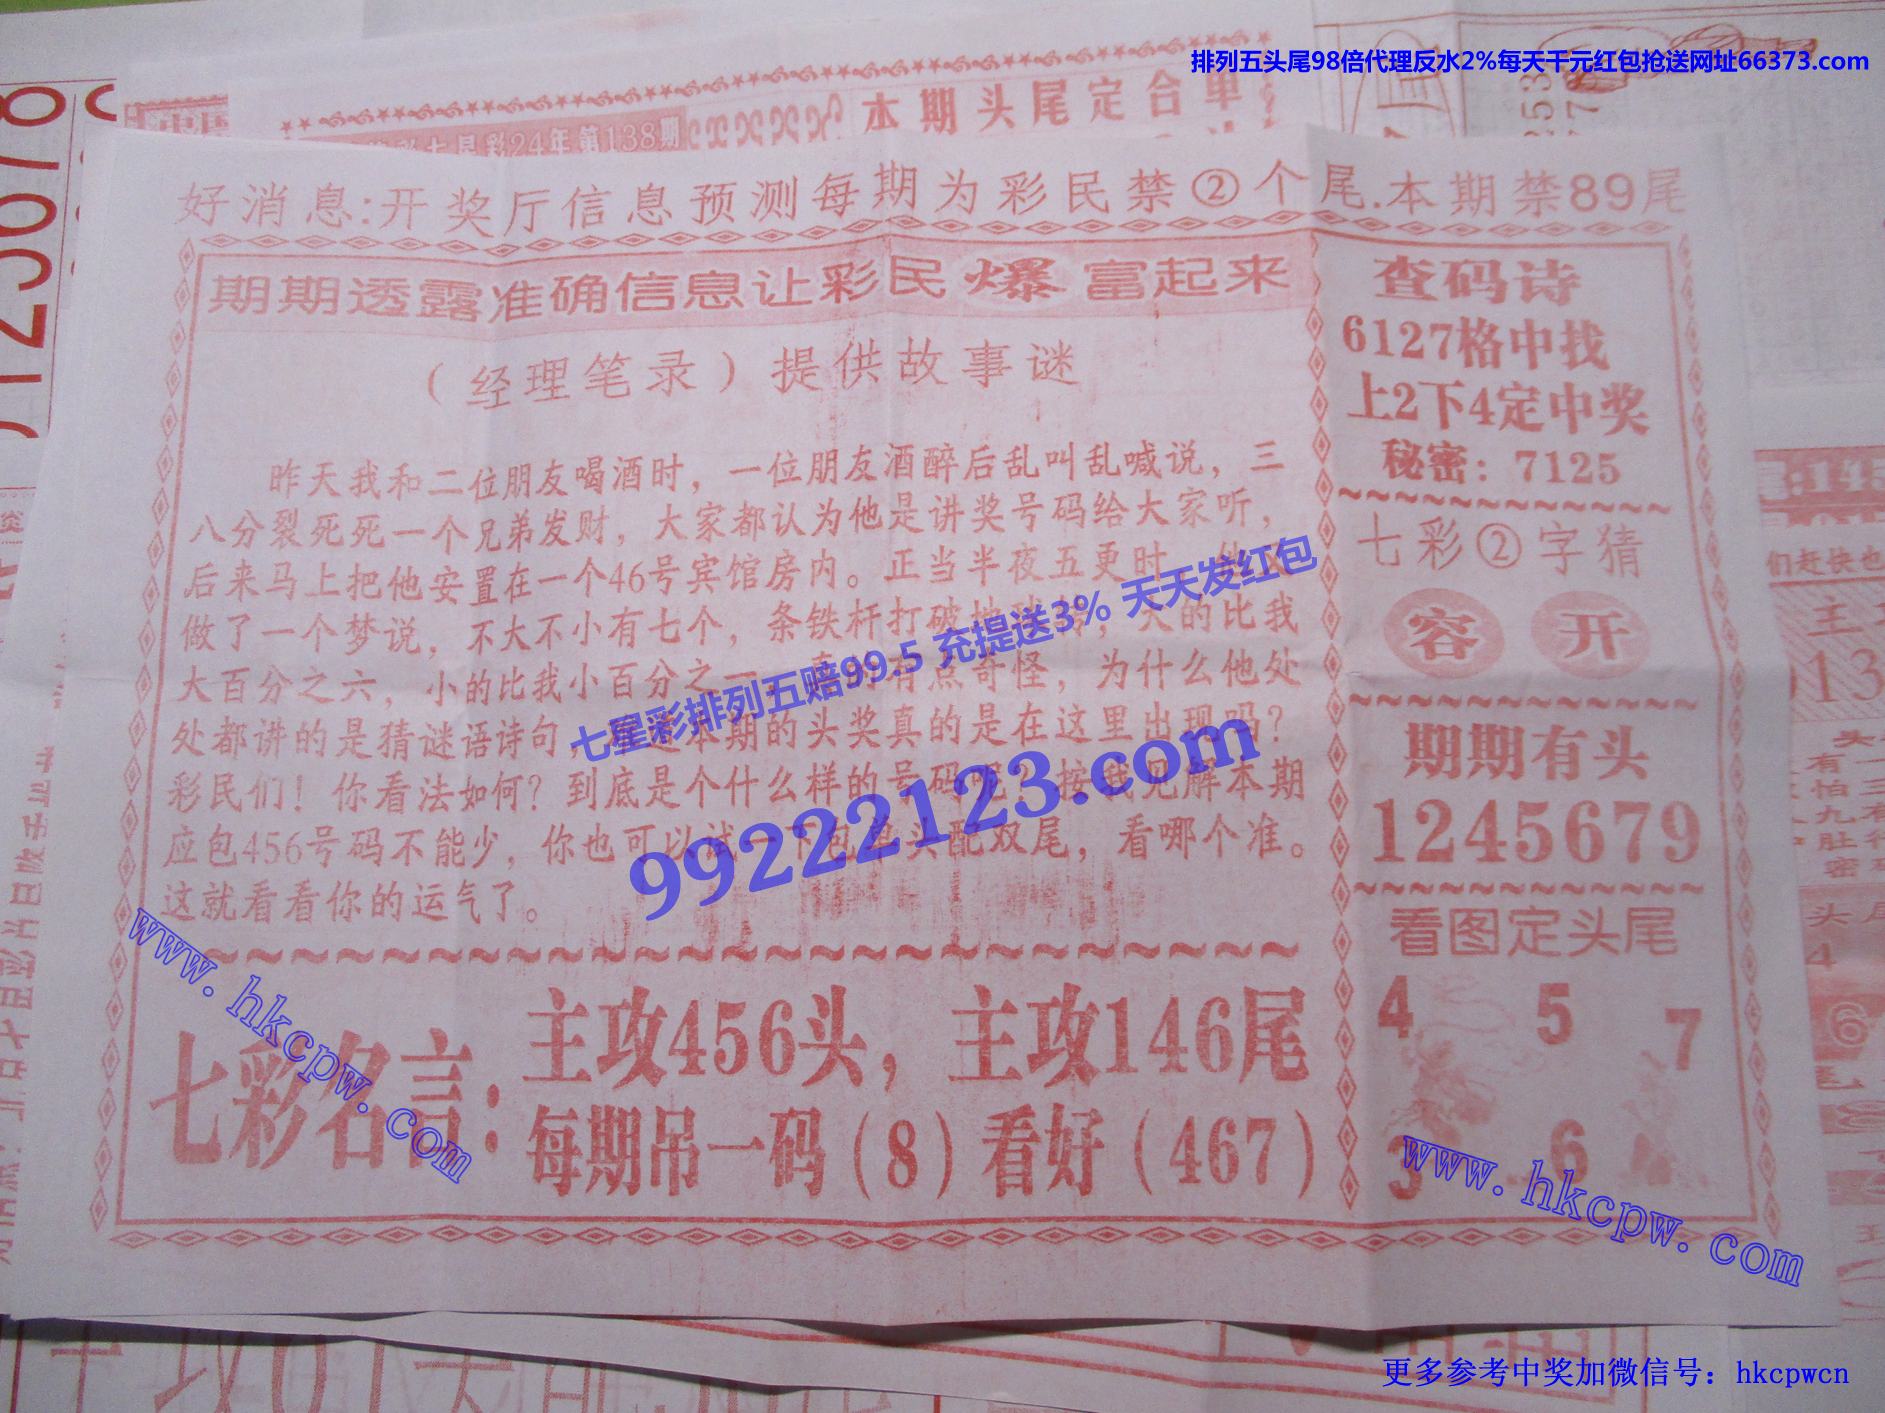 排列五头尾98倍代理反水2%每天千元红包抢送网址66373.com
本期头尾定合单
七星彩24年第138期
好消息:开奖厅信息预测每期为彩民禁②个尾.本期禁89尾
期期透露准确信息让彩民爆富起来
（经理笔录）提供故事谜
昨天我和二位朋友喝酒时，一位朋友酒醉后乱叫乱喊说，三
八分裂死死一个兄弟发财，大家都认为他是讲奖号码给大家听，
后来马上把他安置在一个46号宾馆房内。正当半夜五更时
做了一个梦说，不大不小有七个，条铁杆打破地球转，大的比我
大百分之六，小的比我小百分之一，真的有点奇怪，为什么他处
处都讲的是猜谜语诗句，本期的头奖真的是在这里出现吗？
彩民们！你看法如何？到底是个什么样的号码呢？按我见解本期
应包456号码不能少，你也可以试一下包单头配双尾，看哪个准。
这就看看你的运气了。
七彩名言：
主攻456头，主攻146尾
每期吊一码（8）看好（467）
查码诗
6127格中找
上2下4定中奖
秘密：7125
七彩②字猜
容 开
期期有头
1245679
看图定头尾
4 5 7
3 6
七星彩排列五赔99.5 充提送3% 天天发红包
99222123.com
www.hkcpw.com
www.hkcpw.com
更多参考中奖加微信号：hkcpwcn